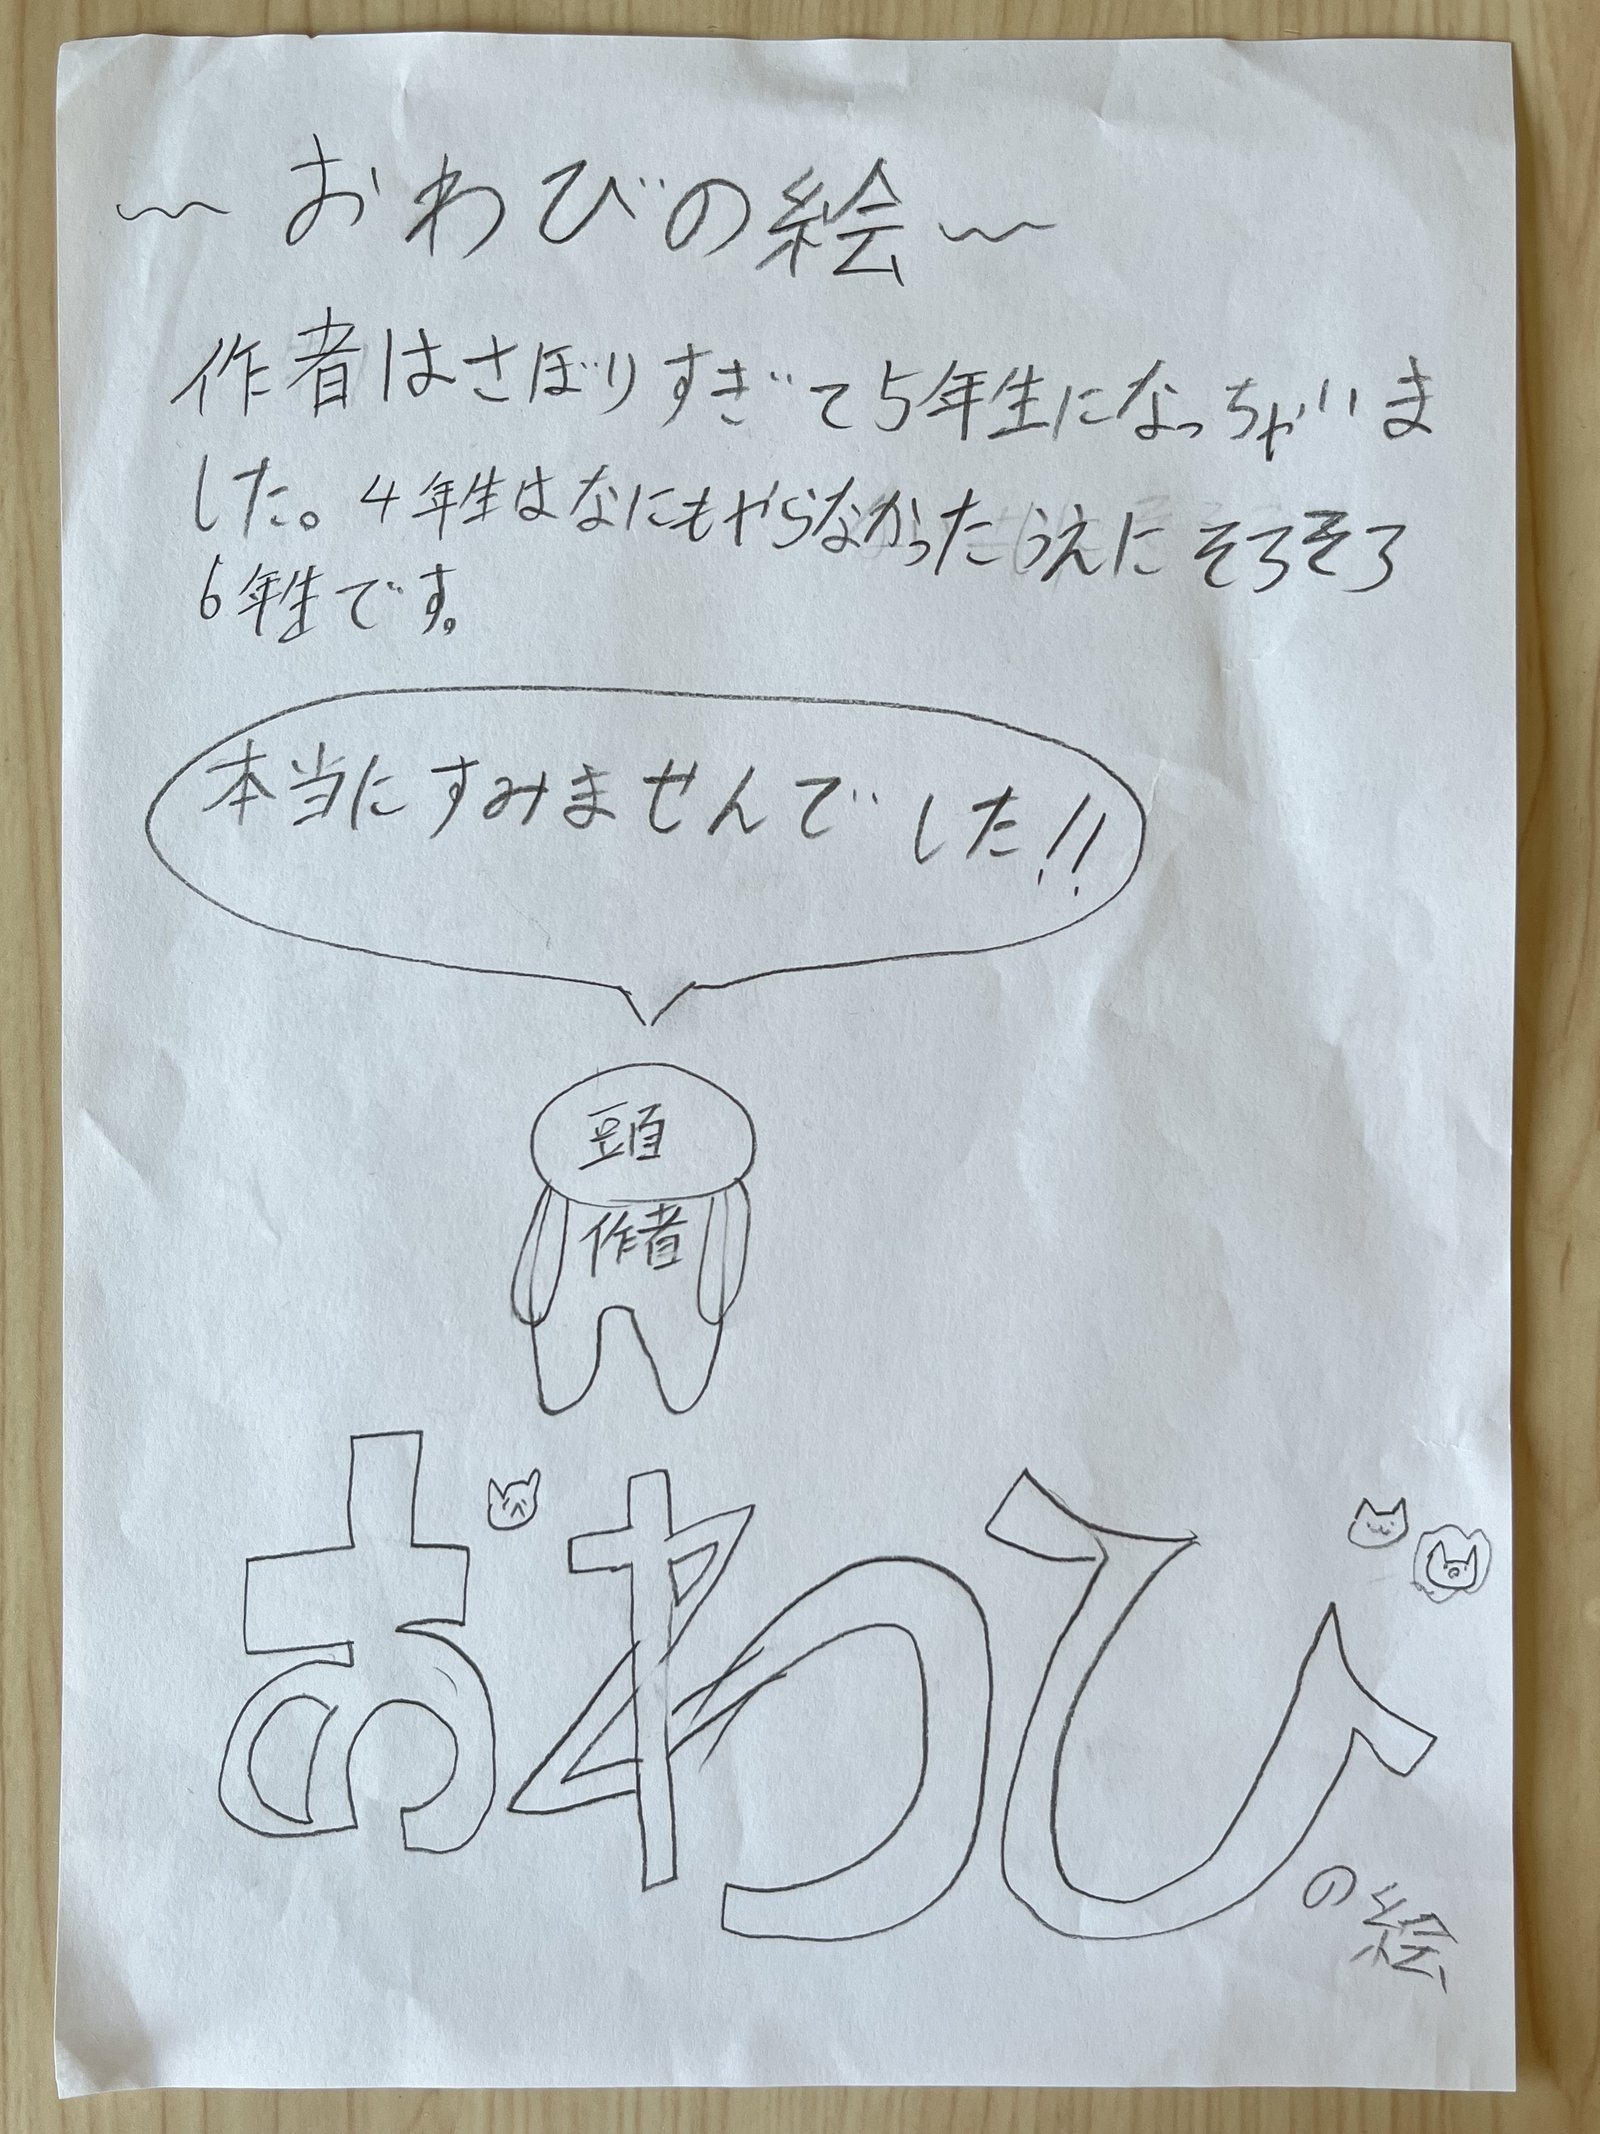 ～おわびの絵～
作者はさぼりすぎて5年生になっちゃいま
した。4年生はなにもやらなかったうえにそろそろ
6年生です。
本当にすみませんでした!!
頭
作者
おわび
の絵